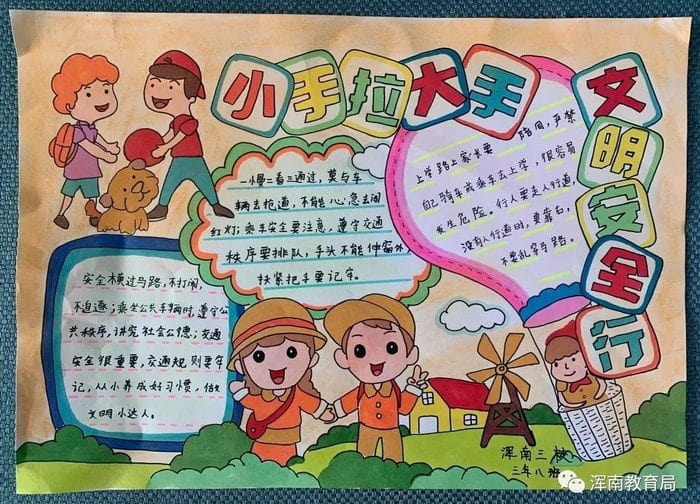 小手拉大手
文明安全行
一慢二看三通过，莫与车
辆去抢道，不能心急去闯
红灯；乘车安全要注意，遵守交通
秩序要排队，手头不能伸窗外，
扶紧把手要记牢。
上学路上家长要 陪同，严禁
自己骑车或乘车去上学，很容易
发生危险。行人要走人行道，
没有人行道时，要靠右，
不要乱穿马路。
安全横过马路，不打闹、
不追逐；乘坐公共车辆时，遵守公
共秩序，讲究社会公德；交通
安全很重要，交通规则要牢
记，从小养成好习惯，做
文明小达人。
浑南三校
三年八班
浑南教育局